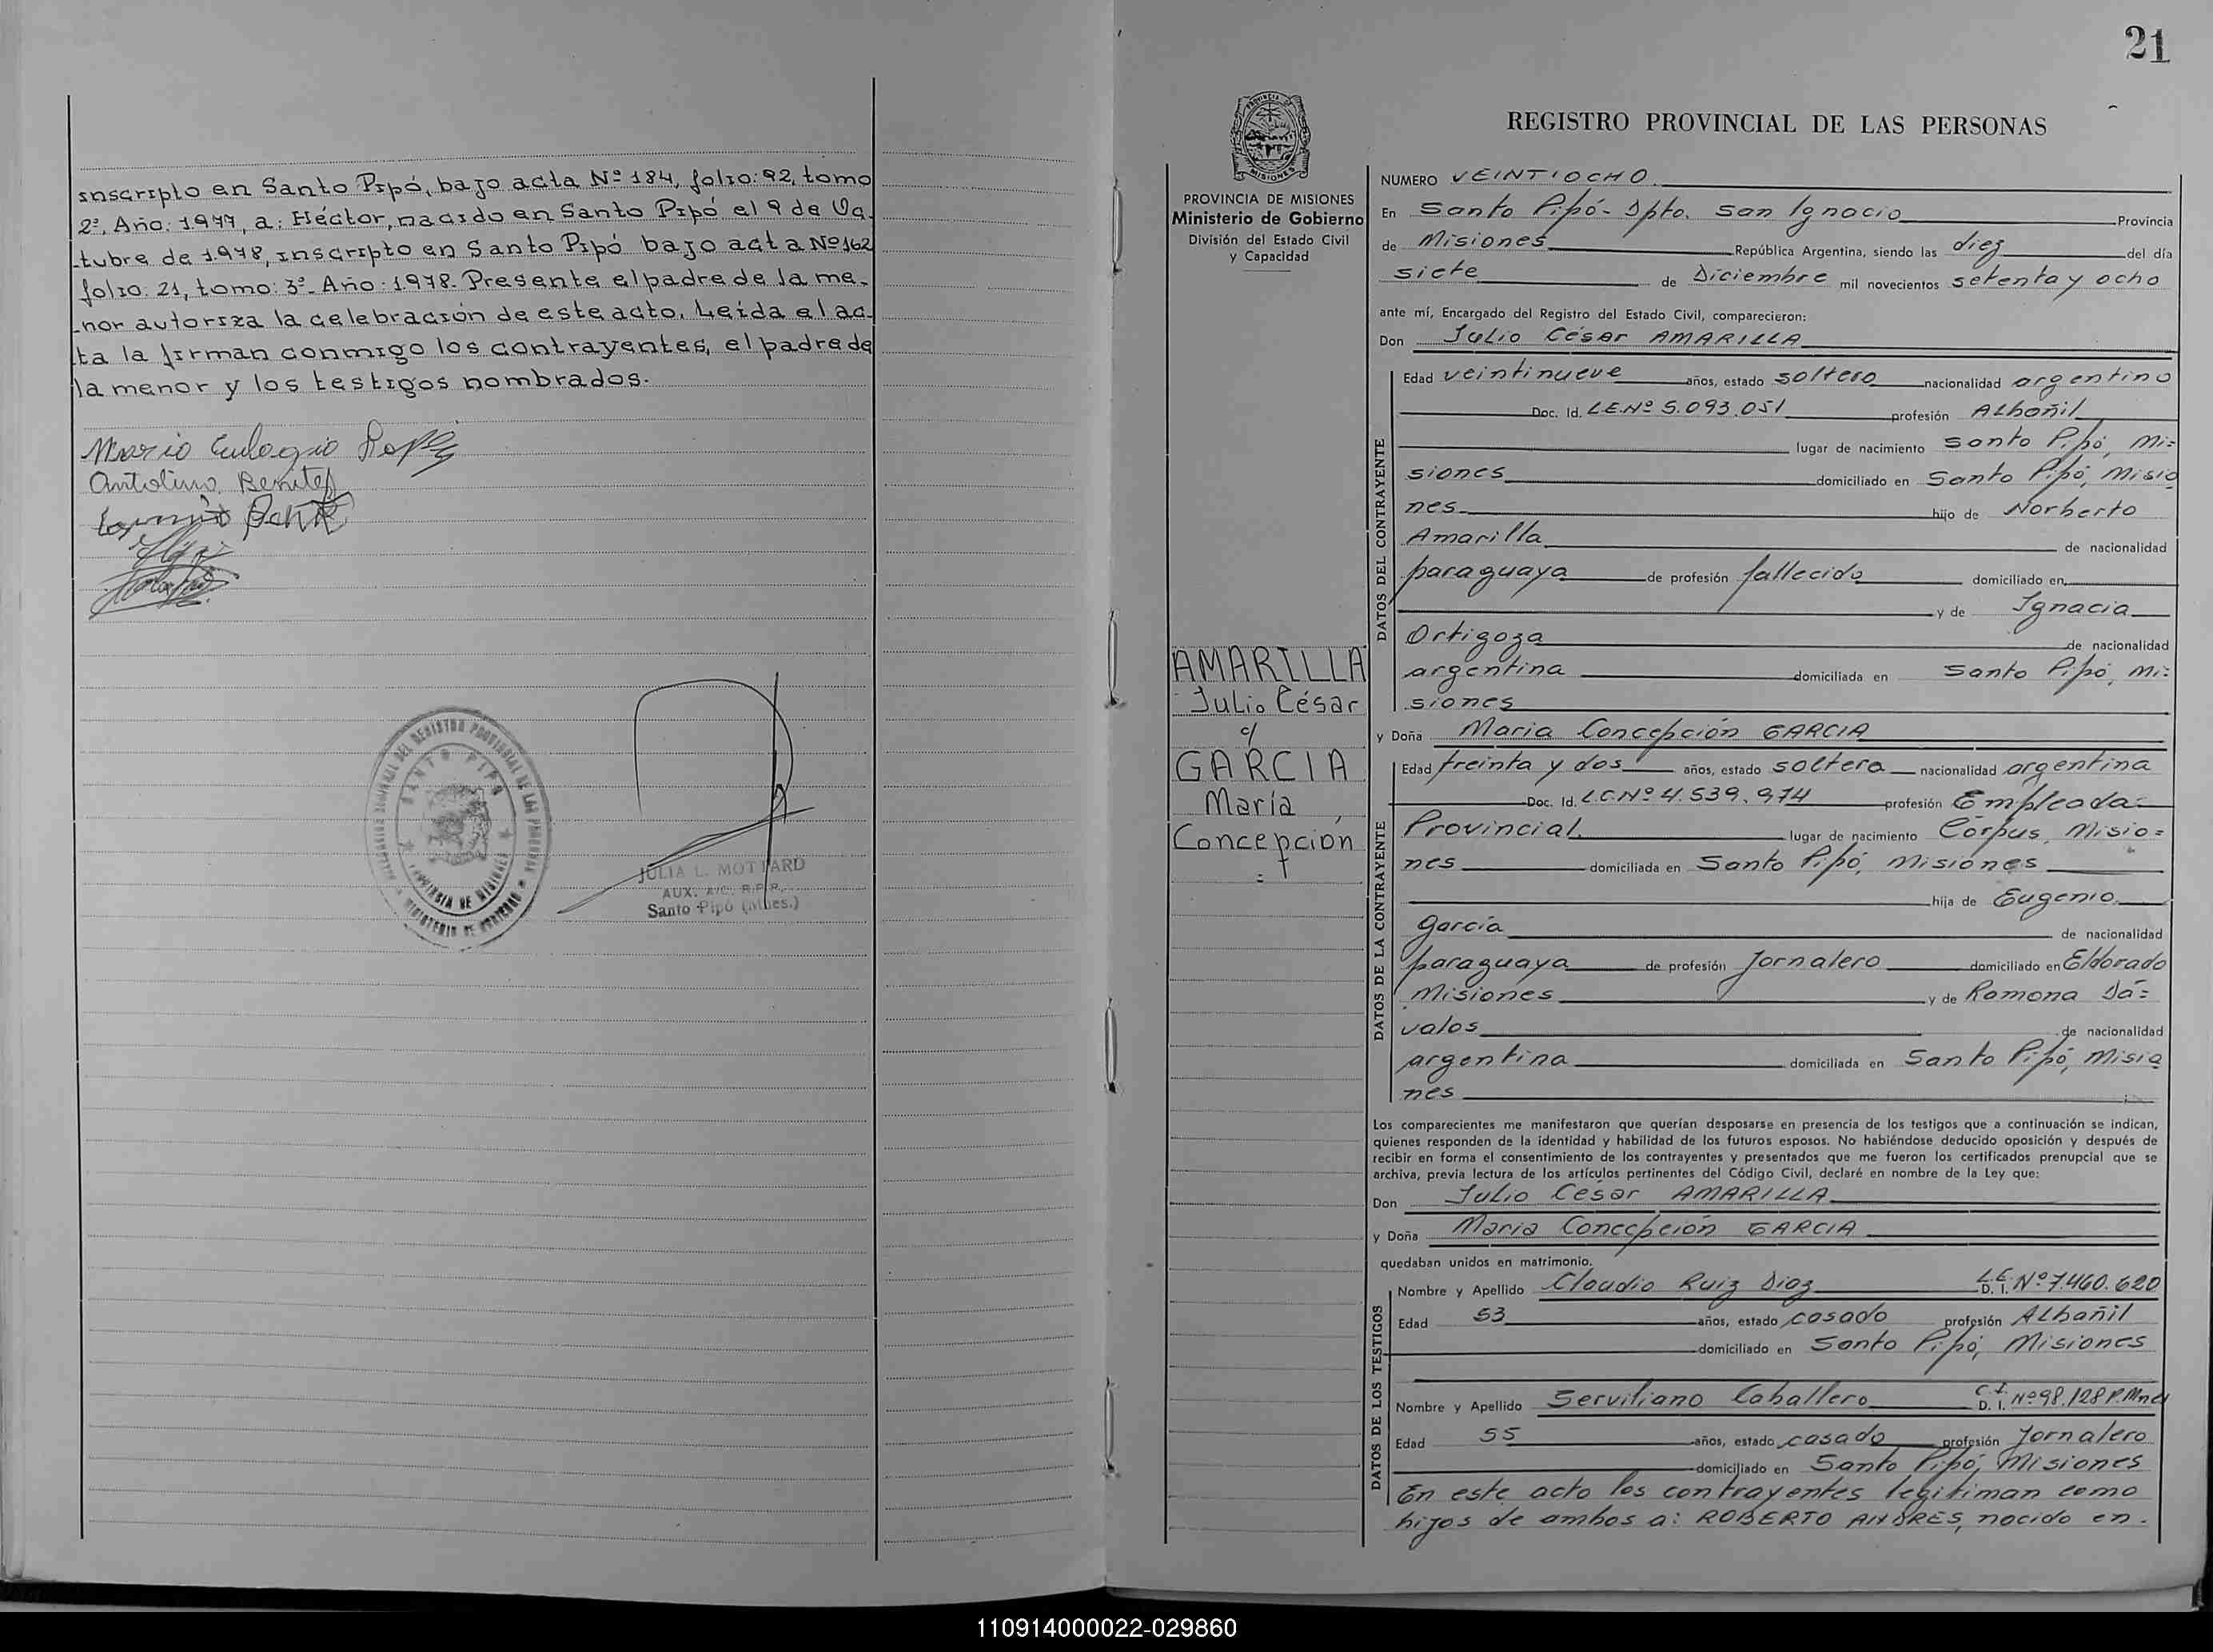 inscripto en Santo Pipó, bajo acta Nº 184, folio: 92, tomo
2º, Año: 1977, a: Héctor, nacido en Santo Pipó el 9 de Oc-
tubre de 1978, inscripto en Santo Pipó bajo acta Nº 162
folio: 21, tomo: 3º- Año: 1978- Presente el padre de la me-
nor autoriza la celebración de este acto. Leída el ac-
ta la firman conmigo los contrayentes, el padre de
la menor y los testigos nombrados.
Mario Eulogio
Antolino Benitez
SANTO PIPO
PROVINCIA DE MISIONES
JULIA L. MOTTARD
AUX. A/C. R.P.P.
Santo Pipó (Mnes.)
21
PROVINCIA DE MISIONES
Ministerio de Gobierno
División del Estado Civil
y Capacidad
AMARILLA
Julio César
c/
GARCIA
María
Concepción
REGISTRO PROVINCIAL DE LAS PERSONAS
NUMERO VEINTIOCHO
En Santo Pipó- Dpto. San Ignacio Provincia
de Misiones República Argentina, siendo las diez del día
siete de Diciembre mil novecientos setenta y ocho
ante mí, Encargado del Registro del Estado Civil, comparecieron:
Don Julio César AMARILLA
DATOS DEL CONTRAYENTE
Edad veintinueve años, estado soltero nacionalidad argentino
Doc. Id. L.E.Nº 5.093.051 profesión Albañil
lugar de nacimiento Santo Pipó, Mi=
siones domiciliado en Santo Pipó, Misio
nes- hijo de Norberto
Amarilla de nacionalidad
paraguaya de profesión fallecido domiciliado en
y de Ignacia
Ortigoza de nacionalidad
argentina domiciliada en Santo Pipó, Mi=
siones
y Doña Maria Concepción GARCIA
DATOS DE LA CONTRAYENTE
Edad treinta y dos años, estado soltera nacionalidad argentina
Doc. Id. L.C.Nº 4.539.974 profesión Empleada
Provincial lugar de nacimiento Corpus, Misio=
nes domiciliada en Santo Pipó, Misiones
hija de Eugenio
García de nacionalidad
paraguaya de profesión Jornalero domiciliado en Eldorado
Misiones y de Ramona Dá=
valos de nacionalidad
argentina domiciliada en Santo Pipó, Misio
nes
Los comparecientes me manifestaron que querían desposarse en presencia de los testigos que a continuación se indican,
quienes responden de la identidad y habilidad de los futuros esposos. No habiéndose deducido oposición y después de
recibir en forma el consentimiento de los contrayentes y presentados que me fueron los certificados prenupcial que se
archiva, previa lectura de los artículos pertinentes del Código Civil, declaré en nombre de la Ley que:
Don Julio César AMARILLA
y Doña Maria Concepción GARCIA
quedaban unidos en matrimonio.
DATOS DE LOS TESTIGOS
Nombre y Apellido Claudio Ruiz Diaz L.E. D. I. Nº 7.460.620
Edad 53 años, estado casado profesión Albañil
domiciliado en Santo Pipó, Misiones
Nombre y Apellido Serviliano Caballero C.I. D. I. Nº 98.128 P.Mnes
Edad 55 años, estado casado profesión Jornalero
domiciliado en Santo Pipó, Misiones
En este acto los contrayentes legitiman como
hijos de ambos a: ROBERTO ANDRES, nacido en-
110914000022-029860